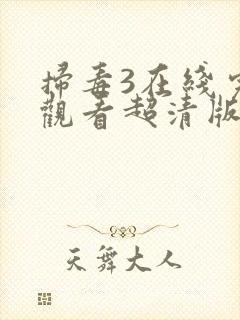 掃毒3在綫
觀看超清版
天舞大人